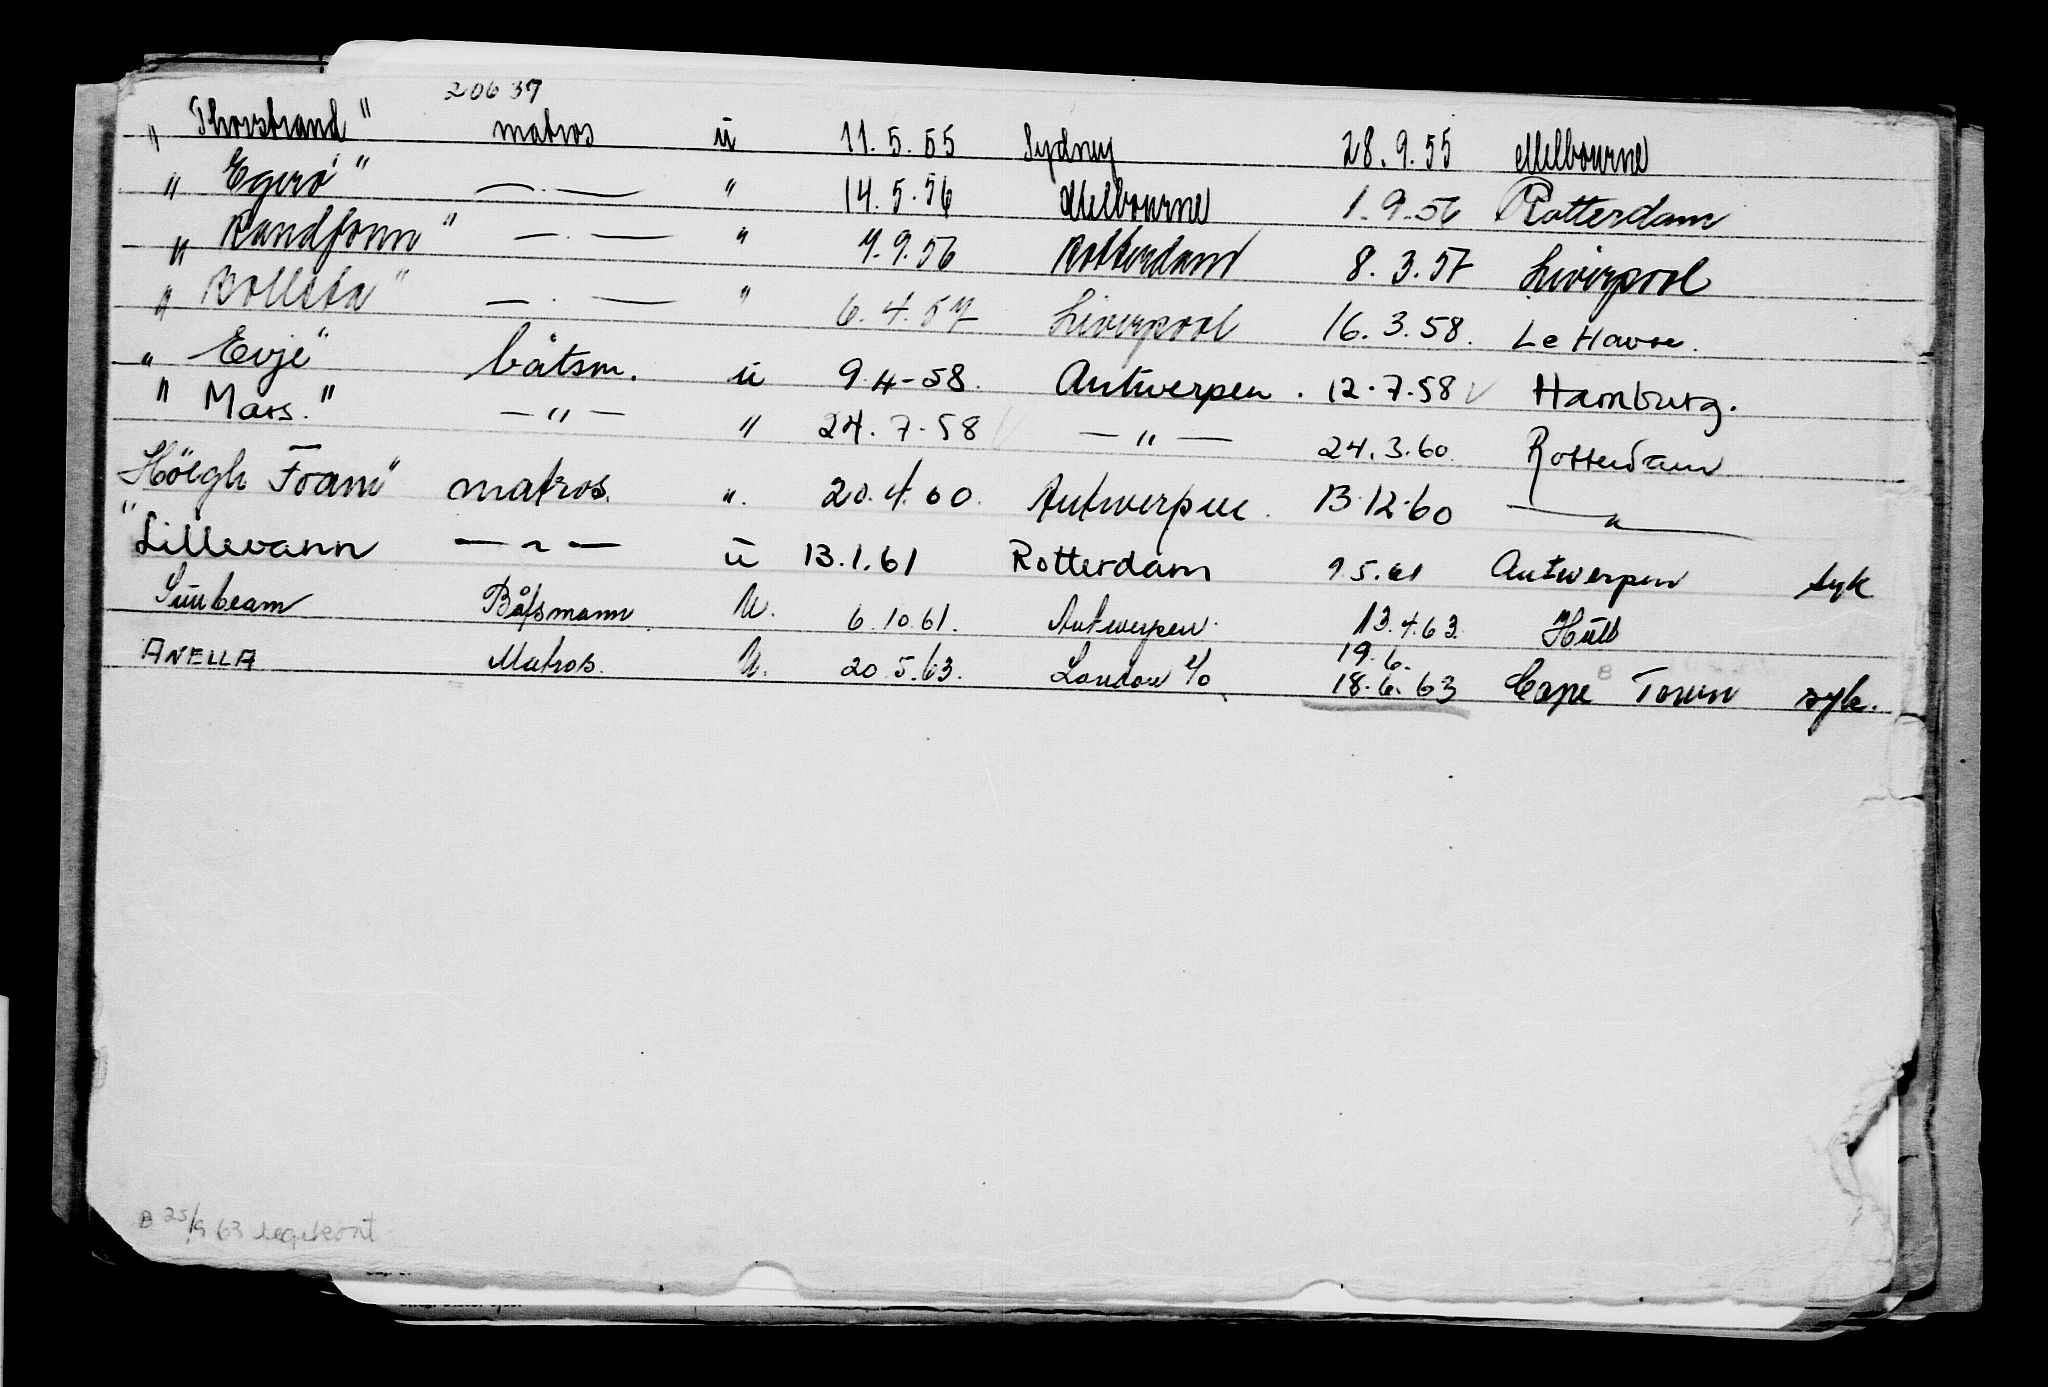 20637
" Thorstrand" matros u 11.5.55 Sydney 28.9.55 Melbourne
" Egerö" — . — " 14.5.56 Melbourne 1.9.56 Rotterdam
" Randfonn" — . — " 7.9.56 Rotterdam 8.3.57 Liverpool
" Bollsta" — . — " 6.4.57 Liverpool 16.3.58. Le Havre.
" Evje" båtsm. u 9.4-58. Antwerpen. 12.7.58 Hamburg.
" Mars." — " — " 24.7.58 — " — 24.3.60. Rotterdam
Höegh Foam" matros. ". 20.4.60. Antwerpen. 13.12.60 — " —
"Lillevann — " — u 13.1.61 Rotterdam 9.5.61 Antwerpen syk
Sunbeam Båtsmann U. 6.10.61. Antwerpen. 13.4.63. Hull
19.6.
ANELLA Matros. U. 20.5.63. London 18.6.63 Cape Town syk.
B 25/9 63 legekont